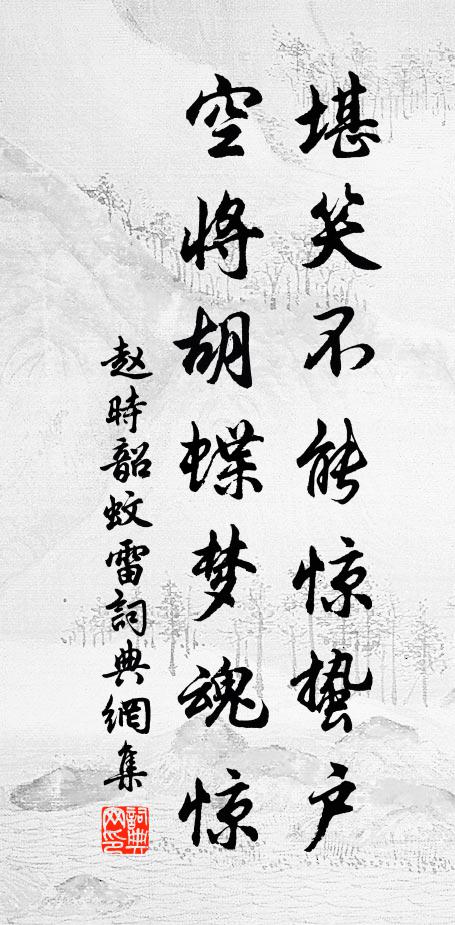 堪笑不能惊蛰户
空将胡蝶梦魂惊
赵時韶蚊雷詞典網集
詞典网印